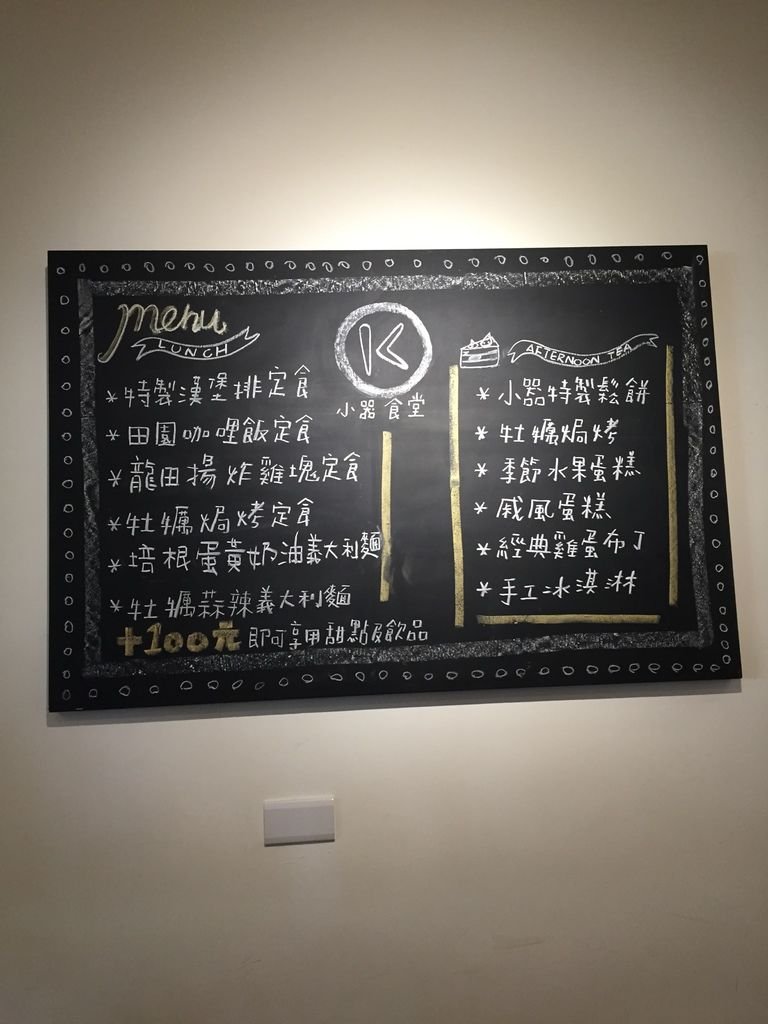 menu
LUNCH
*特製漢堡排定食
*田園咖哩飯定食
*龍田揚炸雞塊定食
*牡蠣焗烤定食
*培根蛋黃奶油義大利麵
*牡蠣蒜辣義大利麵
+100元 即可享用甜點及飲品
K
小器食堂
AFTERNOON TEA
*小器特製鬆餅
*牡蠣焗烤
*季節水果蛋糕
*戚風蛋糕
*經典雞蛋布丁
*手工冰淇淋